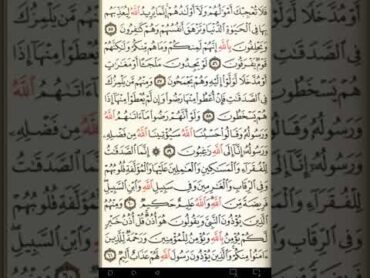 فَلَا تُعْجِبْكَ أَمْوَٰلُهُمْ وَلَآ أَوْلَٰدُهُمْ إِنَّمَا يُرِيدُ ٱللَّهُ لِيُعَذِّبَهُم
بِهَا فِي ٱلْحَيَوٰةِ ٱلدُّنْيَا وَتَزْهَقَ أَنفُسُهُمْ وَهُمْ كَٰفِرُونَ ٥٥
وَيَحْلِفُونَ بِٱللَّهِ إِنَّهُمْ لَمِنكُمْ وَمَا هُم مِّنكُمْ وَلَٰكِنَّهُمْ
قَوْمٌ يَفْرَقُونَ ٥٦ لَوْ يَجِدُونَ مَلْجَـًٔا أَوْ مَغَٰرَٰتٍ
أَوْ مُدَّخَلًا لَّوَلَّوْا۟ إِلَيْهِ وَهُمْ يَجْمَحُونَ ٥٧ وَمِنْهُم مَّن يَلْمِزُكَ
فِي ٱلصَّدَقَٰتِ فَإِنْ أُعْطُوا۟ مِنْهَا رَضُوا۟ وَإِن لَّمْ يُعْطَوْا۟ مِنْهَآ إِذَا
هُمْ يَسْخَطُونَ ٥٨ وَلَوْ أَنَّهُمْ رَضُوا۟ مَآ ءَاتَىٰهُمُ ٱللَّهُ
وَرَسُولُهُۥ وَقَالُوا۟ حَسْبُنَا ٱللَّهُ سَيُؤْتِينَا ٱللَّهُ مِن فَضْلِهِۦ
وَرَسُولُهُۥٓ إِنَّآ إِلَى ٱللَّهِ رَٰغِبُونَ ٥٩ إِنَّمَا ٱلصَّدَقَٰتُ
لِلْفُقَرَآءِ وَٱلْمَسَٰكِينِ وَٱلْعَٰمِلِينَ عَلَيْهَا وَٱلْمُؤَلَّفَةِ قُلُوبُهُمْ
وَفِي ٱلرِّقَابِ وَٱلْغَٰرِمِينَ وَفِي سَبِيلِ ٱللَّهِ وَٱبْنِ ٱلسَّبِيلِ
فَرِيضَةً مِّنَ ٱللَّهِ وَٱللَّهُ عَلِيمٌ حَكِيمٌ ٦٠ وَمِنْهُمُ
ٱلَّذِينَ يُؤْذُونَ ٱلنَّبِيَّ وَيَقُولُونَ هُوَ أُذُنٌ قُلْ أُذُنُ خَيْرٍ
لَّكُمْ يُؤْمِنُ بِٱللَّهِ وَيُؤْمِنُ لِلْمُؤْمِنِينَ وَرَحْمَةٌ لِّلَّذِينَ
ءَامَنُوا۟ مِنكُمْ وَٱلَّذِينَ يُؤْذُونَ رَسُولَ ٱللَّهِ لَهُمْ عَذَابٌ أَلِيمٌ ٦١